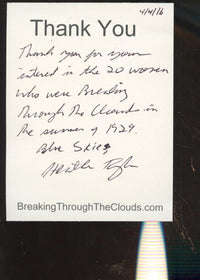 4/4/16
Thank You
Thank you for your
interest in the 20 women
who were Breaking
Through The Clouds in
the summer of 1929.
Blue Skies,
Heather Taylor
BreakingThroughTheClouds.com